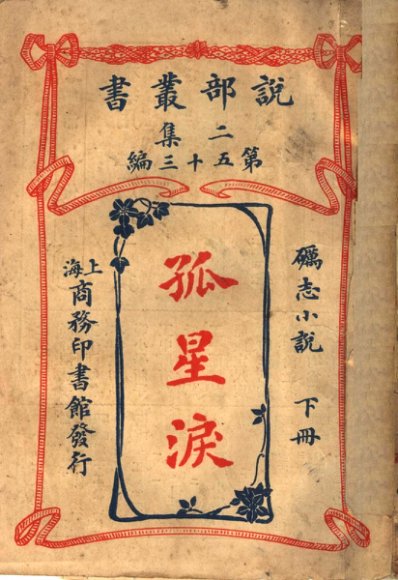 說部叢書
二集
第五十三編
礪志小說 下冊
孤星淚
上海商務印書館發行